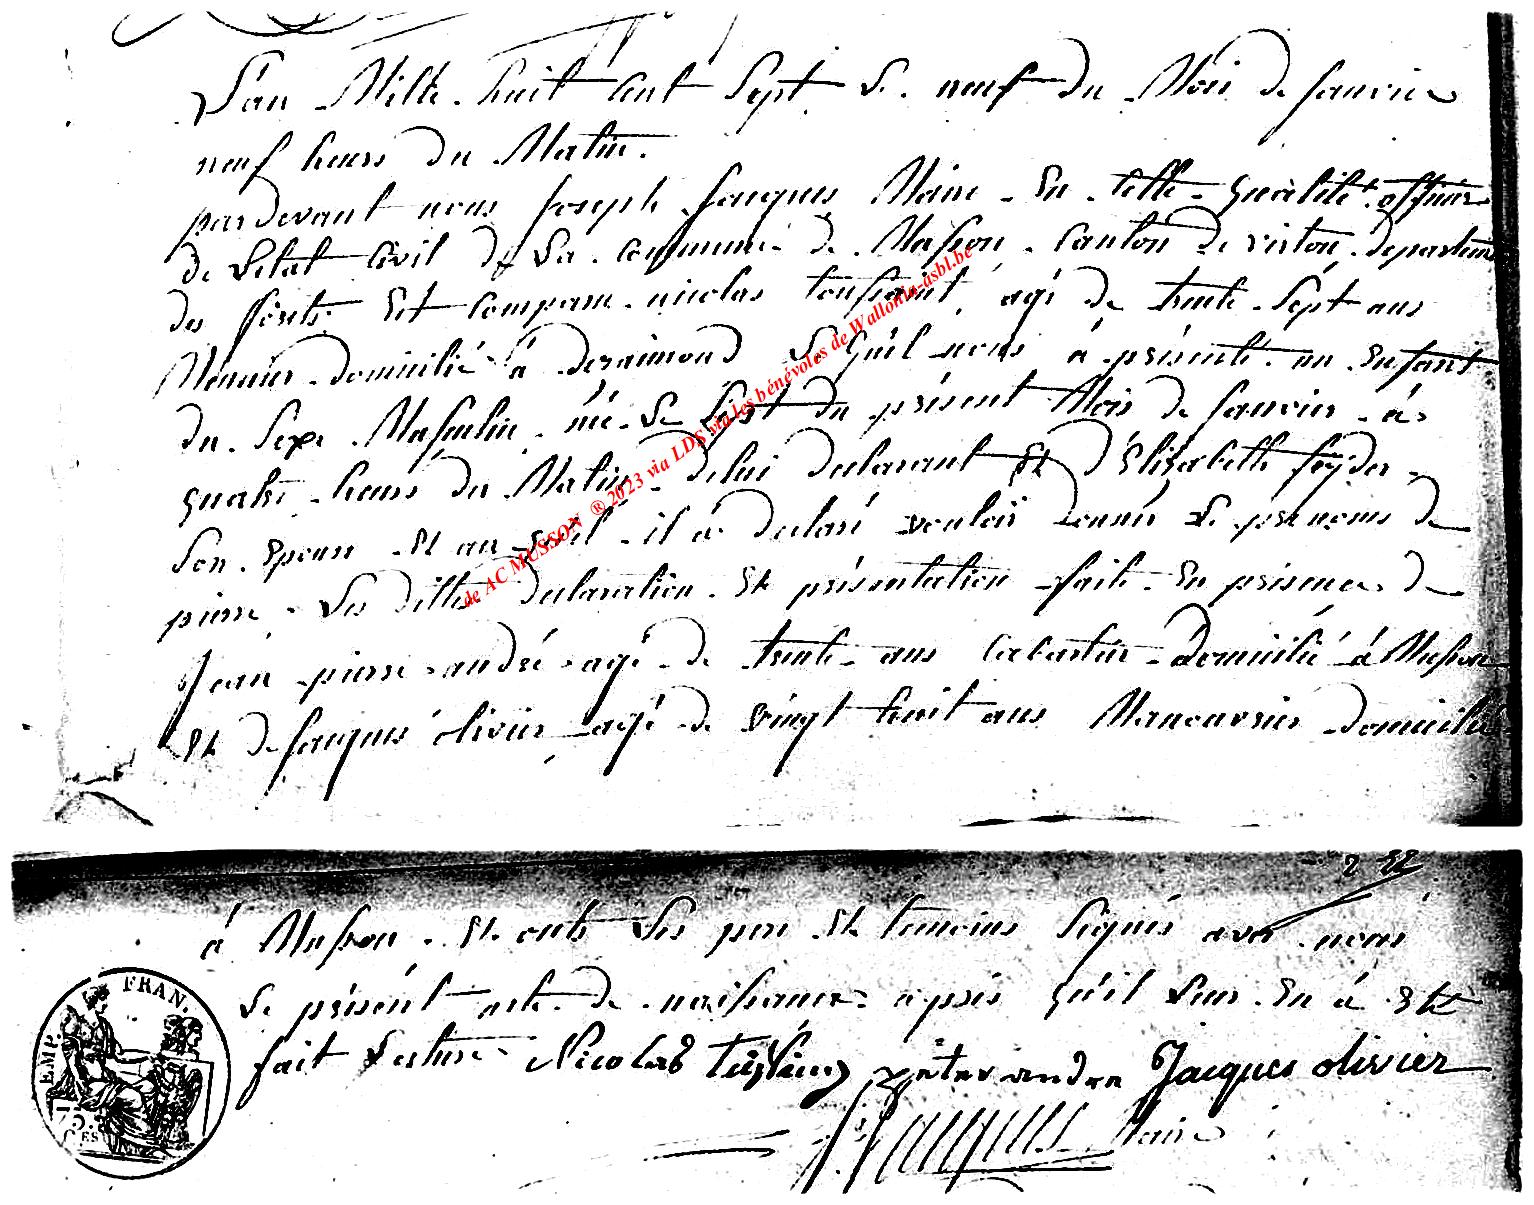 L'an Mille huit Cent Sept Le neuf du Mois de Janvier
neuf heures du Matin.
pardevant nous Joseph Jacques Maire En Cette qualité officier
de Letat Civil de La Commune de Musson Canton de virton departem
des forêts Est Comparu nicolas toussaint agé de trente Sept ans
Meunier domicilié à Lequel nous à présenté un Enfant
du Sexe Masculin né Le du présent Mois de Janvier à
quatre heures du Matin delui declarant Et d'Elizabette
Son Epouse Et au quel il à declaré vouloir donner Le prenoms de
pierre Les dittes declaration Et présentation faite En présence de
Jean pierre andré agé de trente ans domicilié à Musson
Et de Jacques olivier agé de vingt huit ans Manouvrier domicilié
de AC MUSSON ® 2023 via LDS via les bénévoles de Wallonia-asbl.be
2
à Musson Et onts Les pere Et temoins Signés avec nous
Le présent acte de naissance après qu'il Leur En à Eté
fait Lecture Nicolas peter andre Jacques olivier
J. Jacques Maire
EMP. FRAN.
75. CES